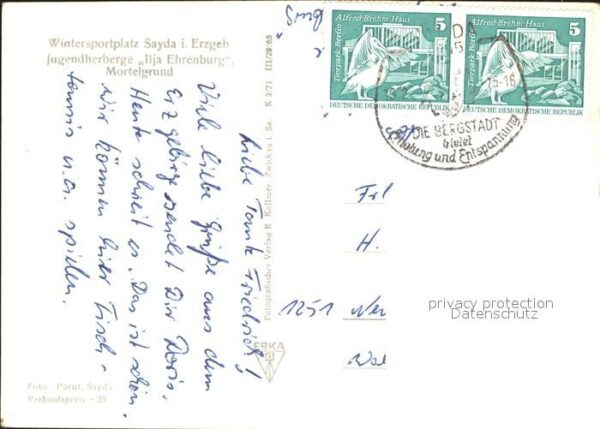 Wintersportplatz Sayda i. Erzgeb
Jugendherberge „Ilja Ehrenburg",
Mortelgrund
Liebe Tante Friedrich!
Viele liebe Grüße aus dem
Erzgebirge sendet Dir Doris.
Heute schneit es. Das ist schön.
Wir können hier Tisch-
tennis u.a. spielen.
Foto: Pärnt, Sayda
Verkaufspreis -.25
Fotografischer Verlag R. Kallmer, Zwickau i. Sa. K 2/71 III/29/85
ERKA
Alfred-Brehm-Haus
5
Tierpark Berlin
DEUTSCHE DEMOKRATISCHE REPUBLIK
Alfred-Brehm-Haus
5
Tierpark Berlin
DEUTSCHE DEMOKRATISCHE REPUBLIK
5-16
DIE BERGSTADT
bietet
Erholung und Entspannung
Frl
H.
1251
privacy protection
Datenschutz